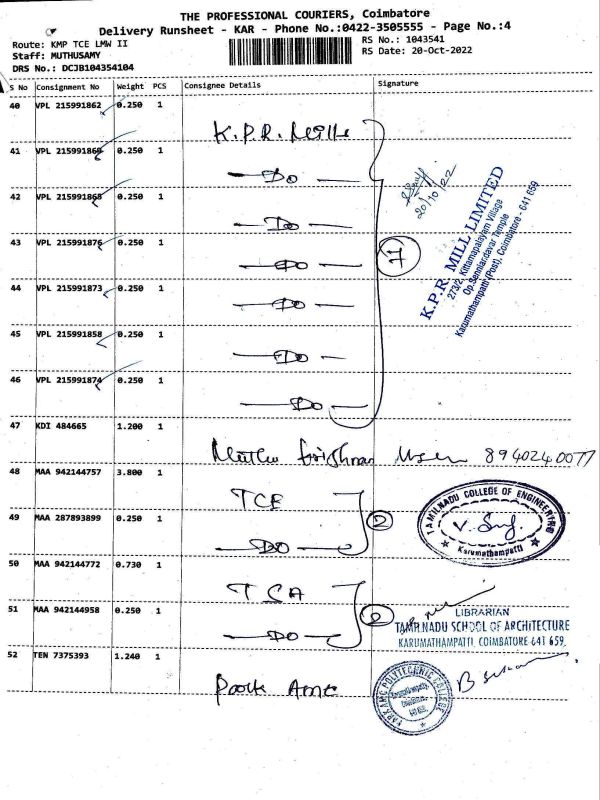 THE PROFESSIONAL COURIERS, Coimbatore
Delivery Runsheet - KAR - Phone No.:0422-3505555 - Page No.:4
Route: KMP TCE LMW II
RS No.: 1043541
Staff: MUTHUSAMY
RS Date: 20-Oct-2022
DRS No.: DCJB104354104
S No Consignment No Weight PCS Consignee Details Signature
40 VPL 215991862 0.250 1
K.P.R. Mills
41 VPL 215991860 0.250 1
Do
42 VPL 215991868 0.250 1
Do
43 VPL 215991876 0.250 1
Do
44 VPL 215991873 0.250 1
Do
45 VPL 215991858 0.250 1
Do
46 VPL 215991874 0.250 1
Do
7
20/10/22
K.P.R. MILL LIMITED
273/2, Kittampalayam Village
Op.Senniandavar Temple
Karumathampatti (Post), Coimbatore - 641 659
47 KDI 484665 1.200 1
8940240077
48 MAA 942144757 3.800 1
TCE
49 MAA 287893899 0.250 1
Do
2
TAMILNADU COLLEGE OF ENGINEERING
Karumathampatti
50 MAA 942144772 0.730 1
TCA
51 MAA 942144958 0.250 1
Do
2
LIBRARIAN
TAMILNADU SCHOOL OF ARCHITECTURE
KARUMATHAMPATTI, COIMBATORE 641 659.
52 TEN 7375393 1.240 1
POLYTECHNIC COLLEGE